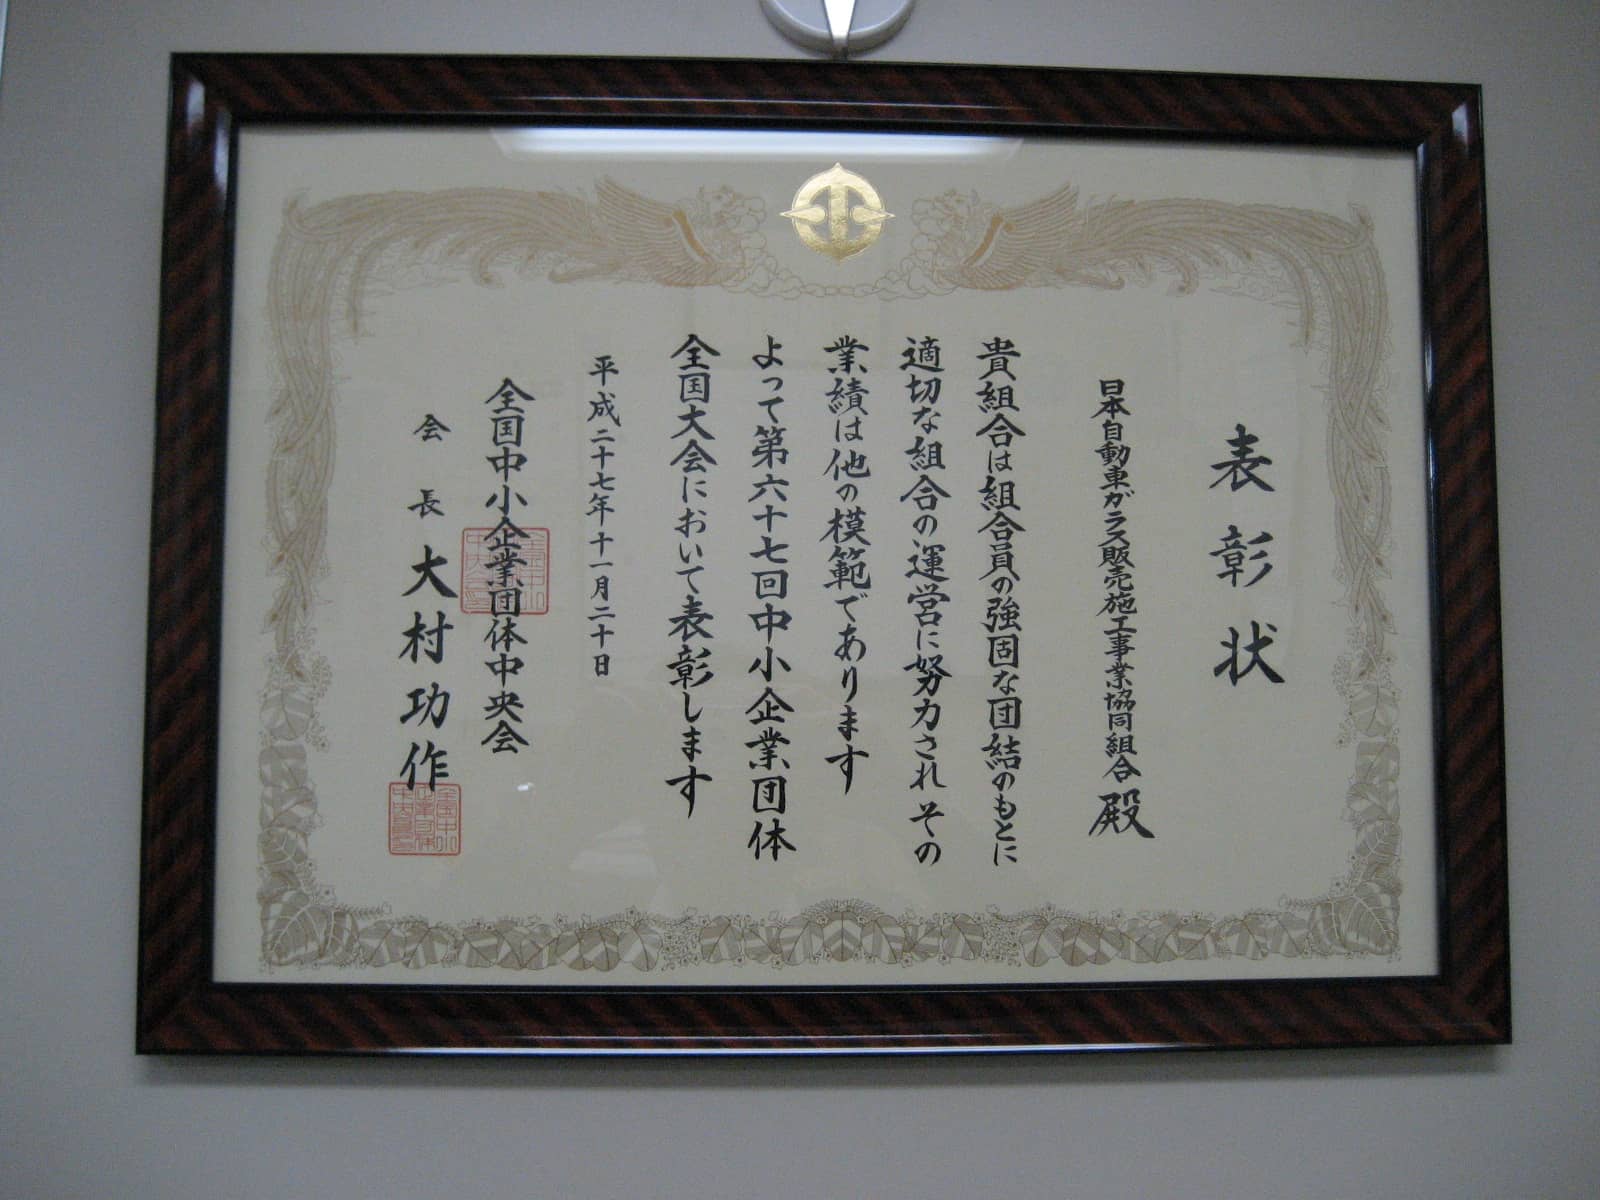 表彰状
日本自動車ガラス販売施工事業協同組合殿
貴組合は組合員の強固な団結のもとに
適切な組合の運営に努力されその
業績は他の模範であります
よって第六十七回中小企業団体
全国大会において表彰します
平成二十七年十一月二十日
全国中小企業団体中央会
会長 大村功作